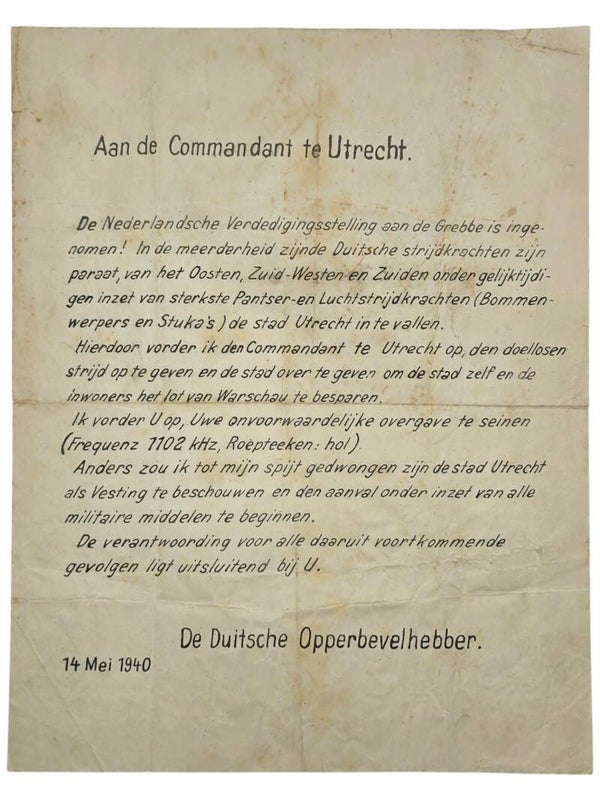 Aan de Commandant te Utrecht.
De Nederlandsche Verdedigingsstelling aan de Grebbe is inge-
nomen! In de meerderheid zijnde Duitsche strijdkrachten zijn
paraat, van het Oosten, Zuid-Westen en Zuiden onder gelijktijdi-
gen inzet van sterkste Pantser- en Luchtstrijdkrachten (Bommen-
werpers en Stuka's) de stad Utrecht in te vallen.
Hierdoor vorder ik den Commandant te Utrecht op, den doellosen
strijd op te geven en de stad over te geven om de stad zelf en de
inwoners het lot van Warschau te besparen.
Ik vorder U op, Uwe onvoorwaardelijke overgave te seinen
(Frequenz 1102 kHz, Roepteeken: hol).
Anders zou ik tot mijn spijt gedwongen zijn de stad Utrecht
als Vesting te beschouwen en den aanval onder inzet van alle
militaire middelen te beginnen.
De verantwoording voor alle daaruit voortkommende
gevolgen ligt uitsluitend bij U.
De Duitsche Opperbevelhebber.
14 Mei 1940